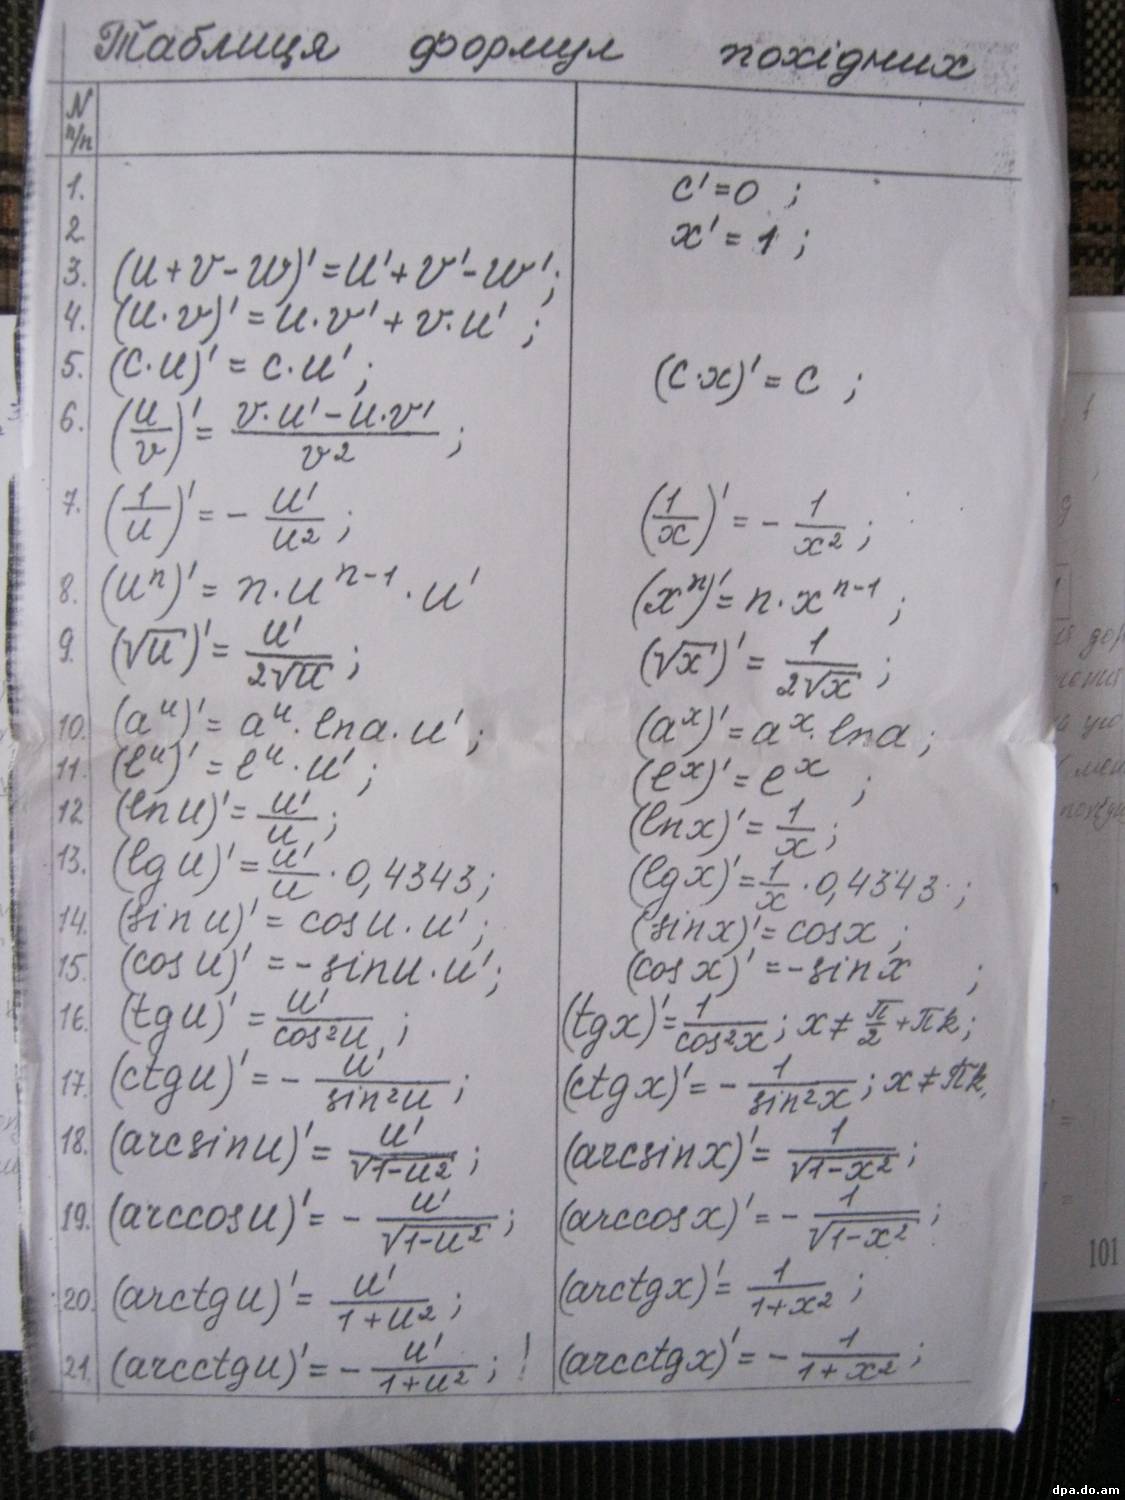 Таблиця формул похідних
N п/п
1. c' = 0 ;
2. x' = 1 ;
3. (u + v - w)' = u' + v' - w' ;
4. (u·v)' = u·v' + v·u' ;
5. (c·u)' = c·u' ; (c·x)' = c ;
6. (u/v)' = (v·u' - u·v')/v² ;
7. (1/u)' = - u'/u² ; (1/x)' = - 1/x² ;
8. (uⁿ)' = n·uⁿ⁻¹·u' (xⁿ)' = n·xⁿ⁻¹ ;
9. (√u)' = u'/(2√u) ; (√x)' = 1/(2√x) ;
10. (aᵘ)' = aᵘ·ln a·u' ; (aˣ)' = aˣ·ln a ;
11. (eᵘ)' = eᵘ·u' ; (eˣ)' = eˣ ;
12 (ln u)' = u'/u ; (ln x)' = 1/x ;
13. (lg u)' = u'/u · 0,4343 ; (lg x)' = 1/x · 0,4343 ;
14. (sin u)' = cos u·u' ; (sin x)' = cos x ;
15. (cos u)' = - sin u·u' ; (cos x)' = - sin x ;
16. (tg u)' = u'/cos²u ; (tg x)' = 1/cos²x ; x ≠ π/2 + πk ;
17. (ctg u)' = - u'/sin²u ; (ctg x)' = - 1/sin²x ; x ≠ πk.
18. (arcsin u)' = u'/√(1-u²) ; (arcsin x)' = 1/√(1-x²) ;
19. (arccos u)' = - u'/√(1-u²) ; (arccos x)' = - 1/√(1-x²) ;
20. (arctg u)' = u'/(1+u²) ; (arctg x)' = 1/(1+x²) ;
21. (arcctg u)' = - u'/(1+u²) ; ! (arcctg x)' = - 1/(1+x²) ;
101
dpa.do.am